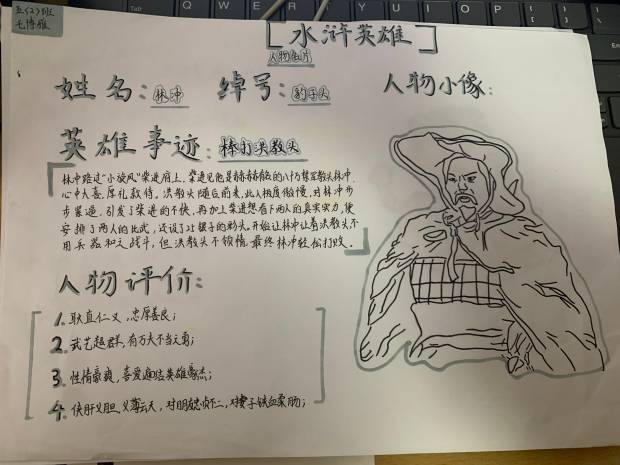 五(2)班
毛博雅
水浒英雄
人物名片
姓名：林冲 绰号：豹子头 人物小像：
英雄事迹：棒打洪教头
林冲路过"小旋风"柴进庄上，柴进见他是赫赫有名的八十万禁军教头林冲，
心中大喜，厚礼款待。洪教头随后前来，此人极度傲慢，对林冲步
步紧逼，引发了柴进的不快，再加上柴进想看下两人的真实实力，便
安排了两人的比武，还设了25银子的彩头。开始让林冲让着洪教头不
用兵器和之战斗，但洪教头不领情，最终林冲轻松打败。
人物评价：
1. 耿直仁义，忠厚善良；
2. 武艺超群，有万夫不当之勇；
3. 性情豪爽，喜爱结英雄豪杰；
4. 侠肝义胆，义薄云天，对朋友忠贞不二，对妻子铁血柔肠；